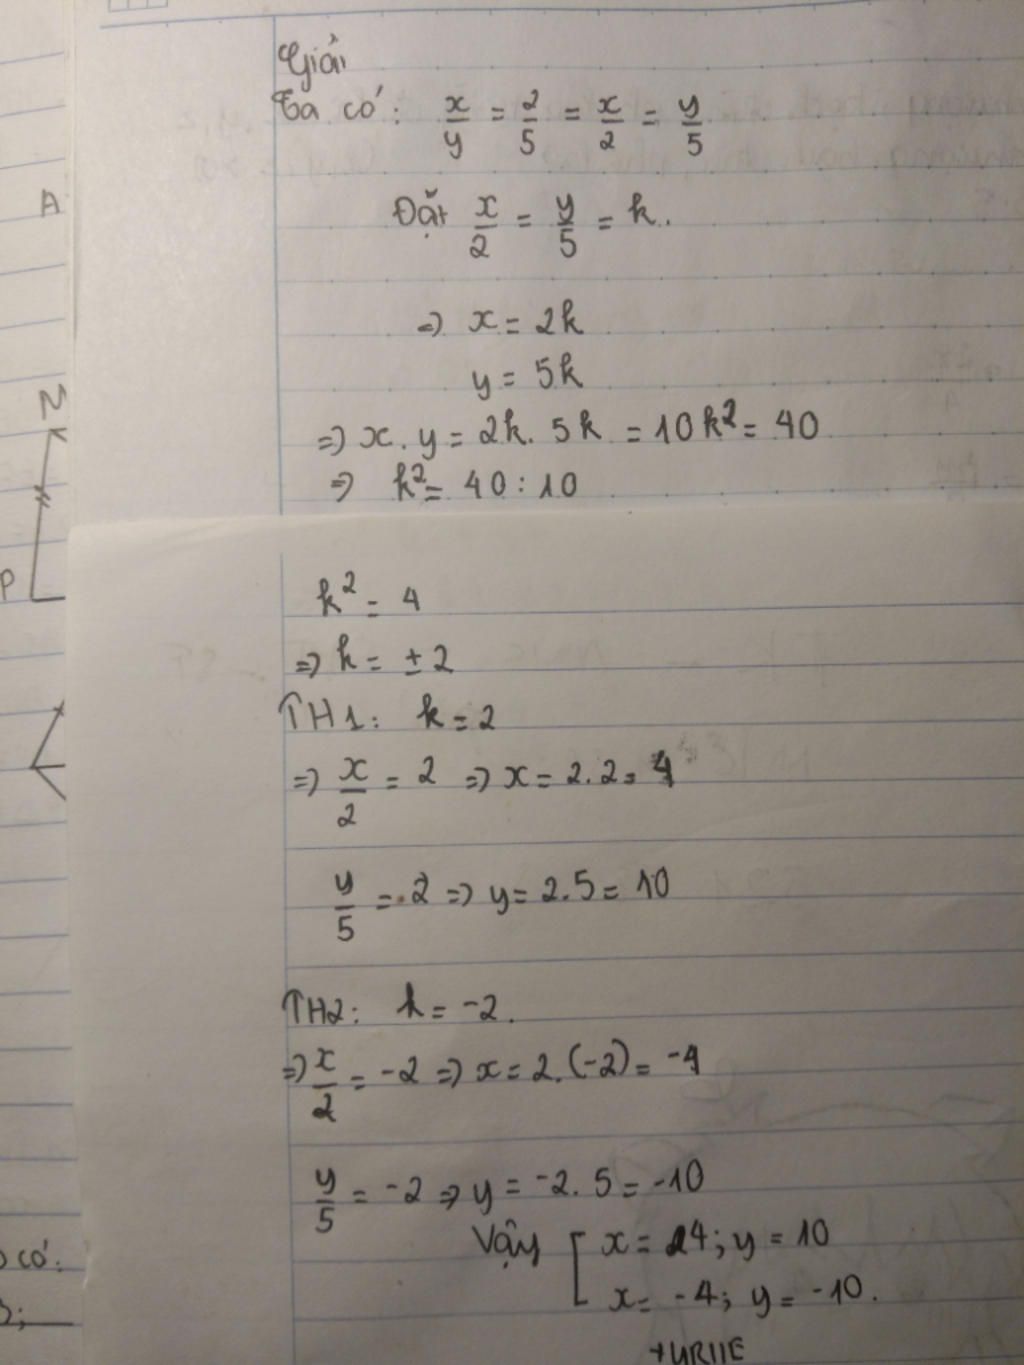 A
Z
P
có:
Giải
Ta có: x/y = 2/5 = x/2 = y/5
Đặt x/2 = y/5 = k.
=> x = 2k
y = 5k
=> x . y = 2k . 5k = 10k² = 40
=> k² = 40 : 10
k² = 4
=> k = ± 2
TH1: k = 2
=> x/2 = 2 => x = 2.2 = 4
y/5 = 2 => y = 2.5 = 10
TH2: k = -2.
=> x/2 = -2 => x = 2.(-2) = -4
y/5 = -2 => y = -2. 5 = -10
Vậy [ x = 4; y = 10
x = -4; y = -10.